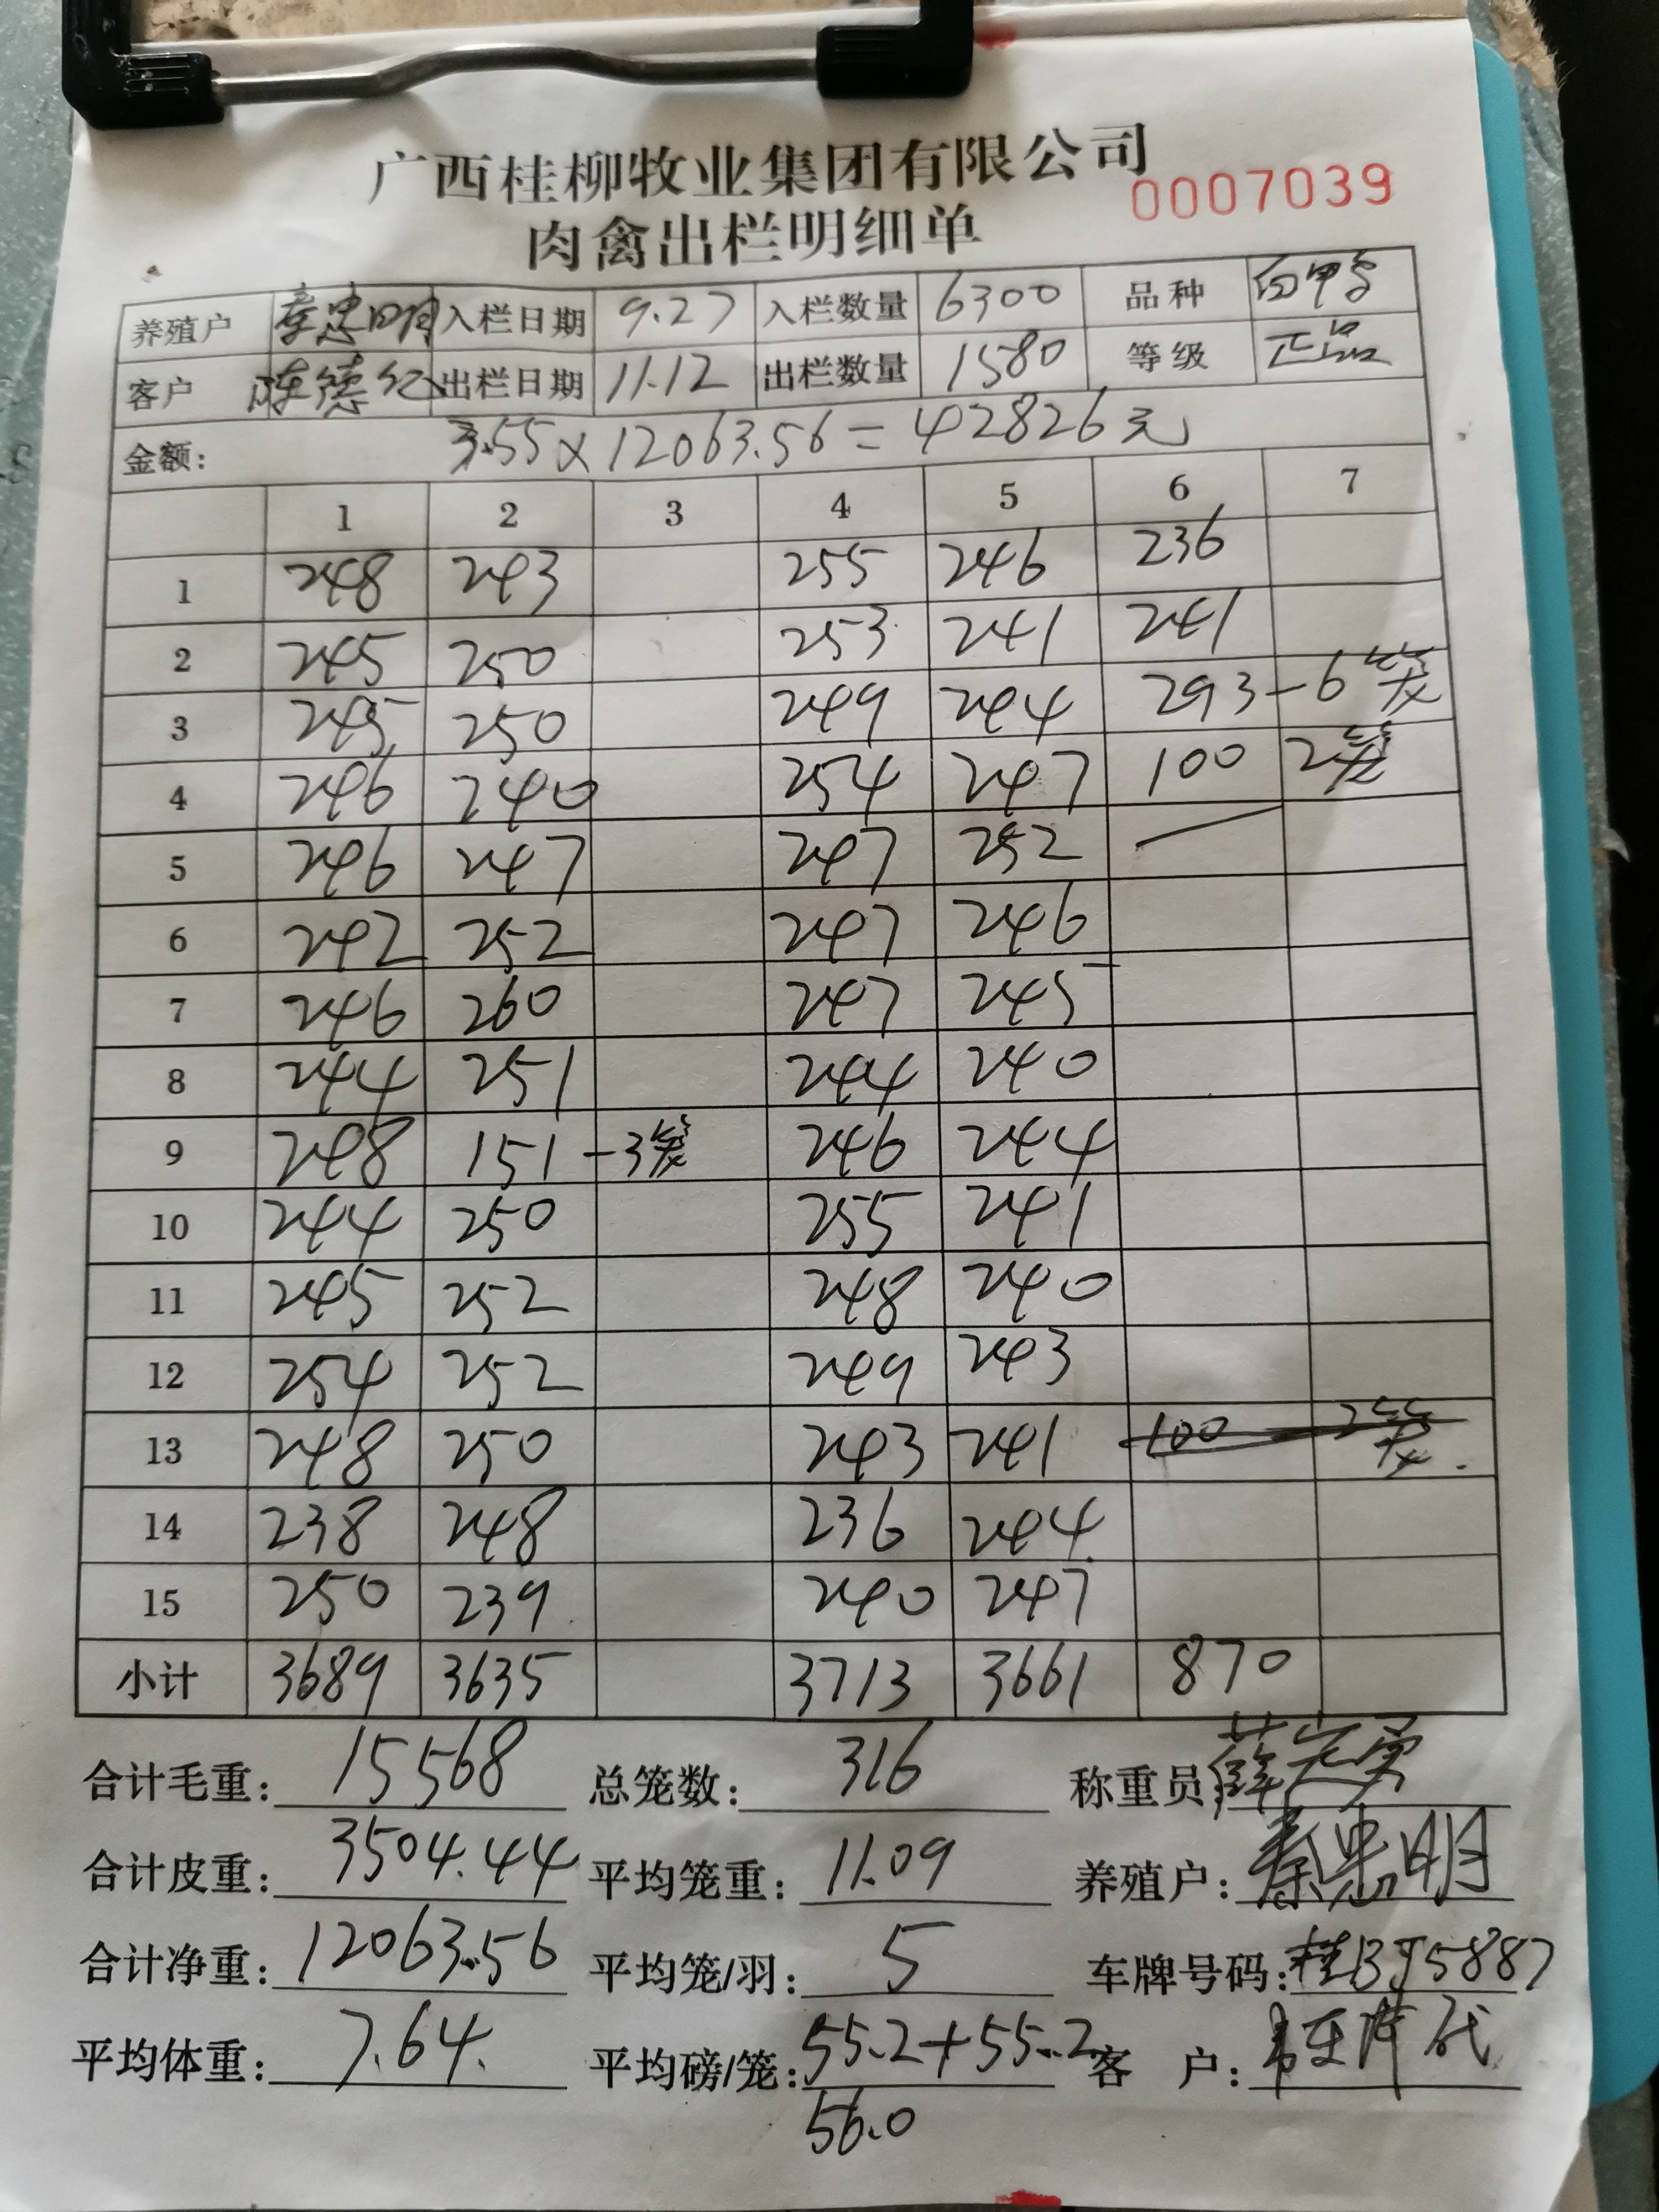 广西桂柳牧业集团有限公司
0007039
肉禽出栏明细单
养殖户 秦忠明 入栏日期 9.27 入栏数量 6300 品种
客户 陈德 出栏日期 11.12 出栏数量 1580 等级 正品
金额: 3.55×12063.56=42826元
1 2 3 4 5 6 7
1 248 243 255 246 236
2 245 250 253 241 241
3 245 250 249 244 293-6笼
4 246 240 254 247 100 2笼
5 246 247 247 252
6 242 252 247 246
7 246 260 247 245
8 244 251 244 240
9 248 151-3笼 246 244
10 244 250 255 241
11 245 252 248 240
12 254 252 249 243
13 248 250 243 241 100 2笼
14 238 248 236 244
15 250 239 240 247
小计 3689 3635 3713 3661 870
合计毛重: 15568 总笼数: 316 称重员
合计皮重: 3504.44 平均笼重: 11.09 养殖户: 秦忠明
合计净重: 12063.56 平均笼/羽: 5 车牌号码: 桂BJ5887
平均体重: 7.64. 平均磅/笼: 55.2+55.2 客 户:
56.0